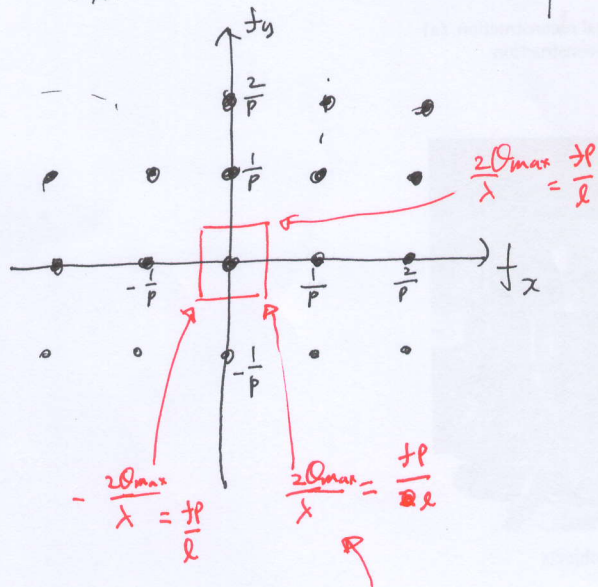 f_y
2/p
1/p
2θmax/λ = fp/l
-1/p 1/p 2/p f_x
-1/p
- 2θmax/λ = fp/l
2θmax/λ = fp/l